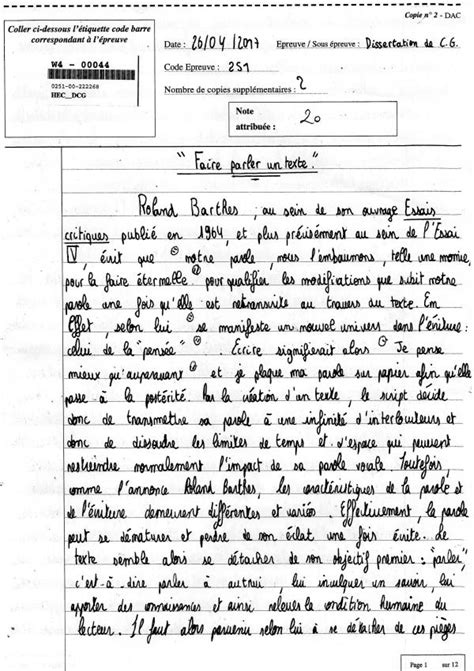 Copie n° 2 - DAC
Coller ci-dessous l'étiquette code barre
correspondant à l'épreuve
W4 - 00044
0251-00-222268
HEC_DCG
Date : 26/04/2017 Epreuve / Sous épreuve : Dissertation de C.G.
Code Epreuve : 251
Nombre de copies supplémentaires : 2
Note
attribuée : 20
"Faire parler un texte."
Roland Barthes, au sein de son ouvrage Essais
critiques publié en 1964, et plus précisément au sein de l'Essai
V, écrit que "notre parole, nous l'embaumons, telle une momie,
pour la faire éternelle" pour qualifier les modifications que subit notre
parole une fois qu'elle est retranscrite au travers du texte. En
Effet, selon lui "se manifeste un nouvel univers dans l'écriture :
celui de la "pensée"". Ecrire signifierait alors "Je pense
mieux qu'auparavant" et je plaque ma parole sur papier afin qu'elle
passe à la postérité. Par la création d'un texte, le script décide
donc de transmettre sa parole à une infinité d'interlocuteurs et
donc de dissoudre les limites de temps et d'espace qui peuvent
restreindre normalement l'impact de sa parole vocale. Toutefois
comme l'annonce Roland Barthes, les caractéristiques de la parole et
de l'écriture demeurent différentes et variées. Effectivement, la parole
peut se dénaturer et perdre de son éclat une fois écrite. Le
texte semble alors se détacher de son objectif premier : "parler",
c'est-à-dire parler à autrui, lui inculquer un savoir, lui
apporter des connaissances et ainsi relever la condition humaine du
lecteur. Il faut alors parvenir selon lui à se détacher de ces pièges
Page 1 sur 12